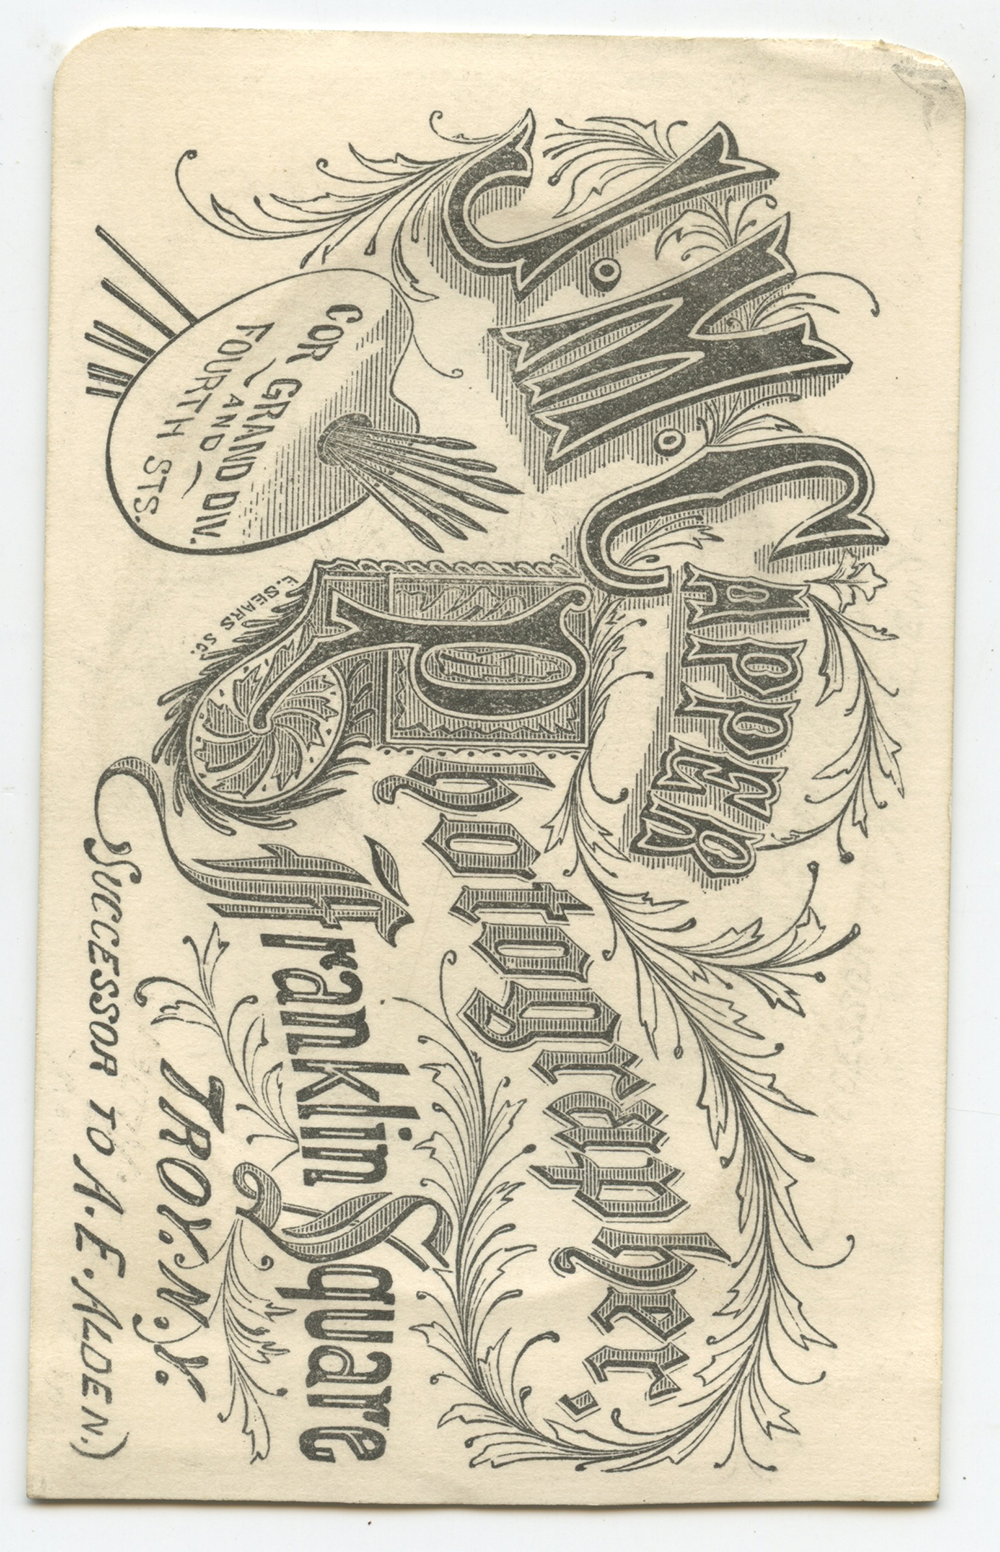 J. M. CAPPER
Photographer.
COR GRAND DIV.
AND
FOURTH STS.
E. SEARS SC.
Franklin Square
TROY. N. Y.
(SUCCESSOR TO A. E. ALDEN.)